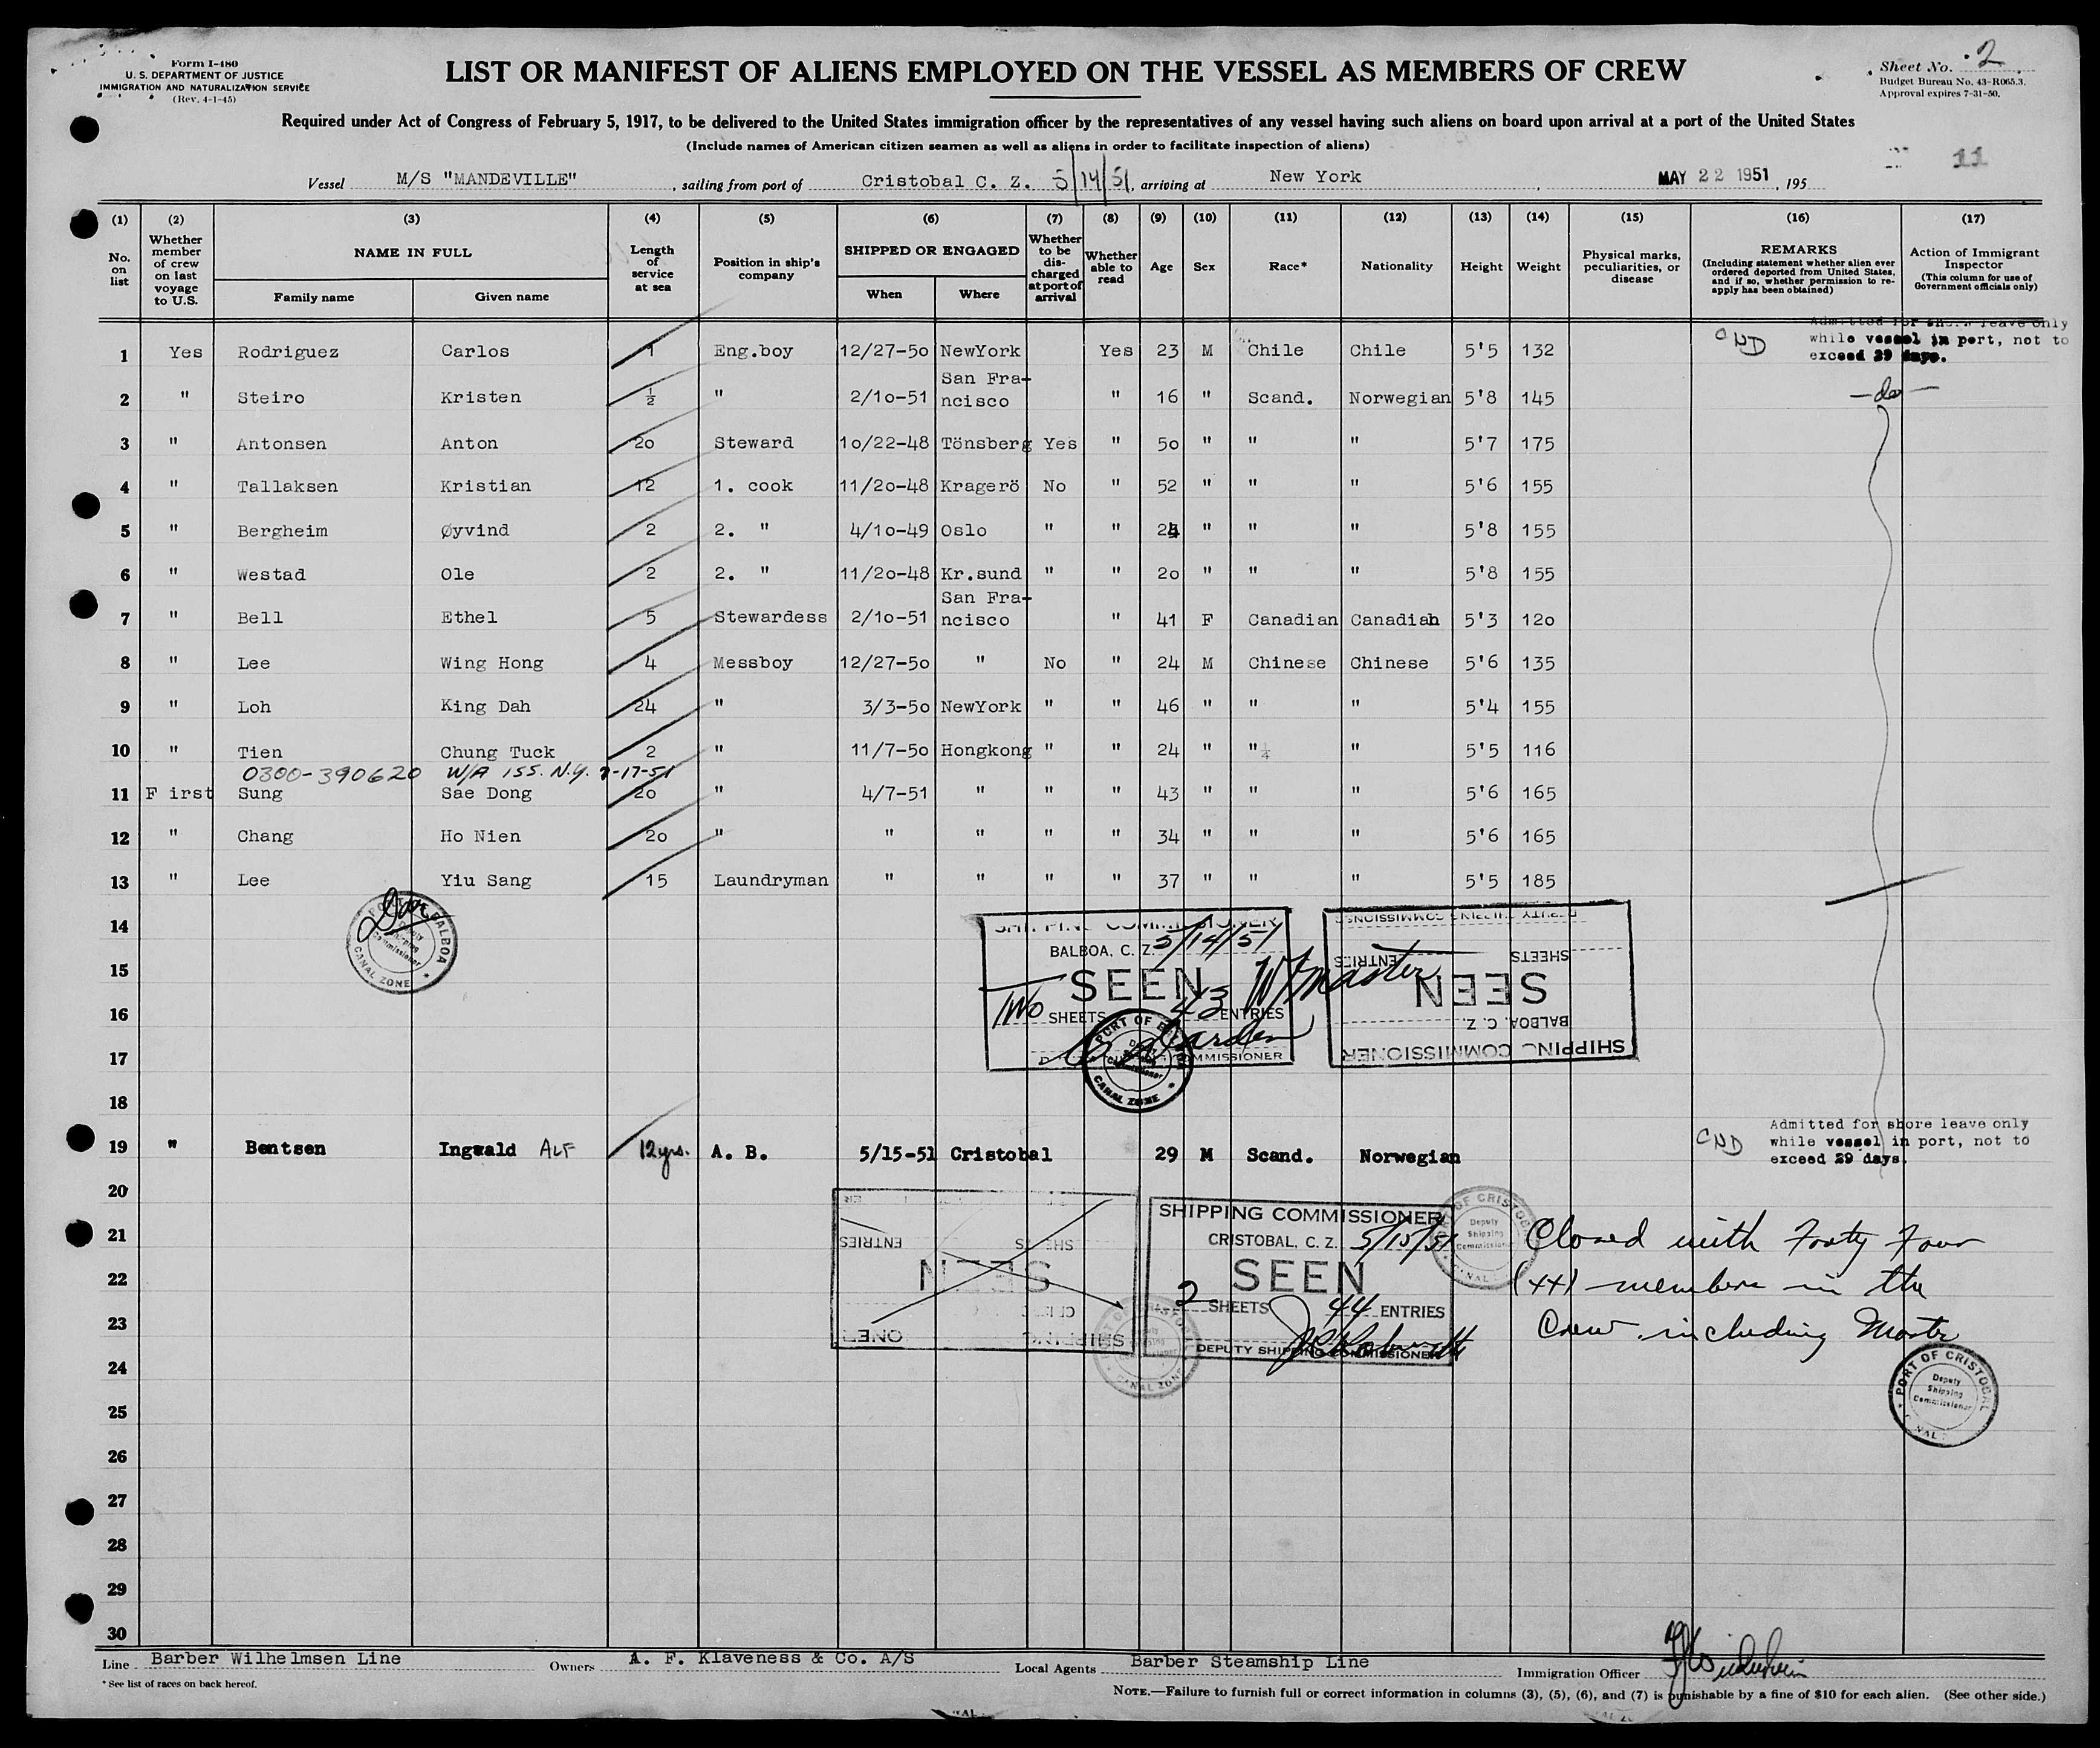 Form I-480
U. S. DEPARTMENT OF JUSTICE
IMMIGRATION AND NATURALIZATION SERVICE
(Rev. 4-1-45)
LIST OR MANIFEST OF ALIENS EMPLOYED ON THE VESSEL AS MEMBERS OF CREW
Sheet No. 2
Budget Bureau No. 43-R065.3.
Approval expires 7-31-50.
Required under Act of Congress of February 5, 1917, to be delivered to the United States immigration officer by the representatives of any vessel having such aliens on board upon arrival at a port of the United States
(Include names of American citizen seamen as well as aliens in order to facilitate inspection of aliens)
11
Vessel M/S "MANDEVILLE", sailing from port of Cristobal C. Z. 5/14/51, arriving at New York, MAY 22 1951, 195
(1) (2) (3) (4) (5) (6) (7) (8) (9) (10) (11) (12) (13) (14) (15) (16) (17)
No. on list
Whether member of crew on last voyage to U.S.
NAME IN FULL
Family name Given name
Length of service at sea
Position in ship's company
SHIPPED OR ENGAGED
When Where
Whether to be discharged at port of arrival
Whether able to read
Age
Sex
Race*
Nationality
Height
Weight
Physical marks, peculiarities, or disease
REMARKS
(Including statement whether alien ever ordered deported from United States, and if so, whether permission to reapply has been obtained)
Action of Immigrant Inspector
(This column for use of Government officials only)
1 Yes Rodriguez Carlos 1 Eng.boy 12/27-50 NewYork Yes 23 M Chile Chile 5'5 132 CND Admitted for shore leave only
while vessel in port, not to
exceed 29 days.
2 " Steiro Kristen ½ " 2/10-51 San Fra-ncisco " 16 " Scand. Norwegian 5'8 145 —do—
3 " Antonsen Anton 20 Steward 10/22-48 Tönsberg Yes " 50 " " " 5'7 175
4 " Tallaksen Kristian 12 1. cook 11/20-48 Kragerö No " 52 " " " 5'6 155
5 " Bergheim Øyvind 2 2. " 4/10-49 Oslo " " 24 " " " 5'8 155
6 " Westad Ole 2 2. " 11/20-48 Kr.sund " " 20 " " " 5'8 155
7 " Bell Ethel 5 Stewardess 2/10-51 San Fra-ncisco " 41 F Canadian Canadian 5'3 120
8 " Lee Wing Hong 4 Messboy 12/27-50 " No " 24 M Chinese Chinese 5'6 135
9 " Loh King Dah 24 " 3/3-50 NewYork " " 46 " " " 5'4 155
10 " Tien Chung Tuck 2 " 11/7-50 Hongkong " " 24 " " " 5'5 116
0300-390620 W/A ISS. N.Y. 7-17-51
11 First Sung Sae Dong 20 " 4/7-51 " " " 43 " " " 5'6 165
12 " Chang Ho Nien 20 " " " " " 34 " " " 5'6 165
13 " Lee Yiu Sang 15 Laundryman " " " " 37 " " " 5'5 185
14
PORT OF BALBOA
Deputy Shipping Commissioner
CANAL ZONE
SHIPPING COMMISSIONER
BALBOA, C. Z. 5/14/51
SEEN
Two SHEETS 43 ENTRIES W/master
DEPUTY SHIPPING COMMISSIONER
PORT OF BALBOA
Deputy Shipping Commissioner
CANAL ZONE
SHIPPING COMMISSIONER
BALBOA, C. Z.
SEEN
SHEETS ENTRIES
DEPUTY SHIPPING COMMISSIONER
15
16
17
18
19 " Bentsen Ingwald ALF 12 yrs. A. B. 5/15-51 Cristobal 29 M Scand. Norwegian CND Admitted for shore leave only
while vessel in port, not to
exceed 29 days.
20
21
22
23
SHEETS ENTRIES
SEEN
SHIPPING COMMISSIONER
CRISTOBAL, C. Z. 5/15/51
SEEN
2 SHEETS 44 ENTRIES
DEPUTY SHIPPING COMMISSIONER
PORT OF CRISTOBAL
Deputy Shipping Commissioner
CANAL ZONE
Closed with Forty Four
(44) members in the
Crew including Master
PORT OF CRISTOBAL
Deputy Shipping Commissioner
24
25
26
27
28
29
30
Line Barber Wilhelmsen Line Owners A. F. Klaveness & Co. A/S Local Agents Barber Steamship Line Immigration Officer
* See list of races on back hereof.
NOTE.—Failure to furnish full or correct information in columns (3), (5), (6), and (7) is punishable by a fine of $10 for each alien. (See other side.)